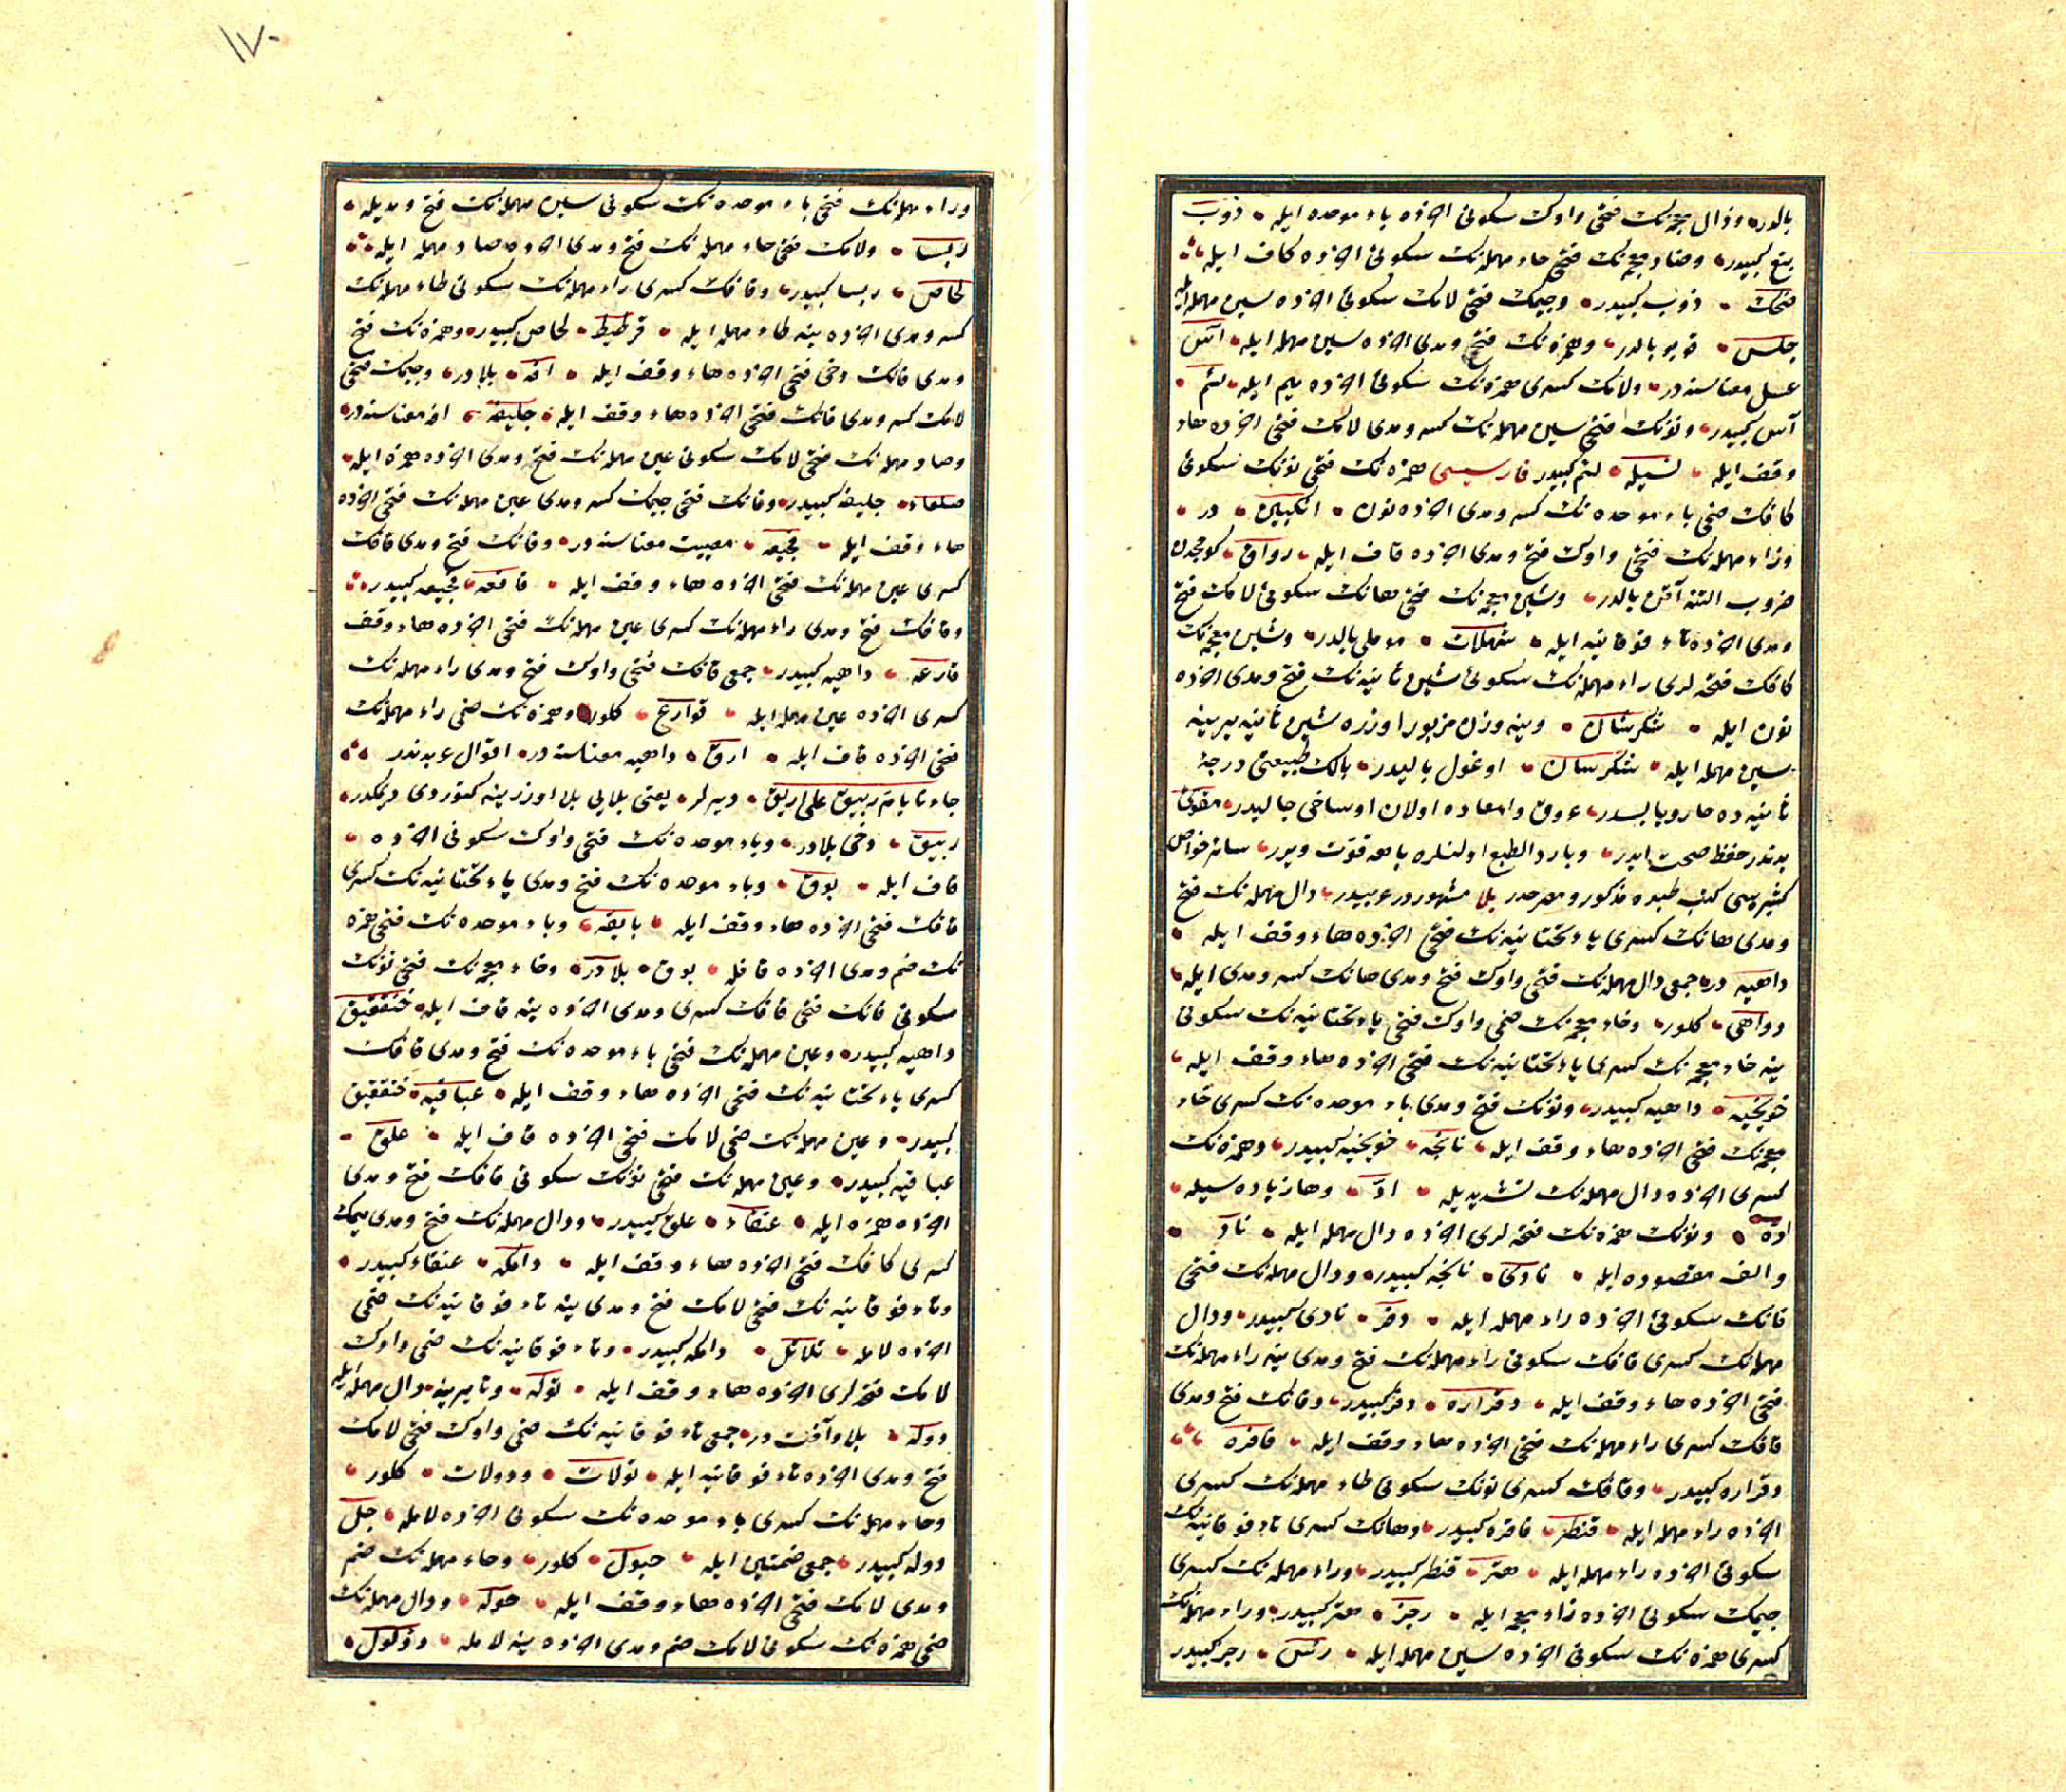 بالدر وذال معجمه نك فتحى واوك سكونى اخرده باء موحده ايله ذوب
بتع كبيدر وضاد معجمه نك فتحى حاء مهمله نك سكونى اخرده كاف ايله
ضحك ذوب كبيدر وجيمك فتحى لامك سكونى اخرده سين مهمله ايله
جلس قويو بالدر وهمزه نك فتحى ومدى اخرده سين مهمله ايله آس
عسل معناسنه در ولامك كسرى همزه نك سكونى اخرده ميم ايله لئم
آس كبيدر ونونك فتحى سين مهمله نك كسر ومدى لامك فتحى اخرده هاء
وقف ايله نسيله لئم كبيدر فارسيسى همزه نك فتحى نونك سكونى
كافك ضمى باء موحده نك كسر ومدى اخرده نون انكبين در
وراء مهمله نك فتحى واوك فتح ومدى اخرده قاف ايله رواق كومجدن
ضروب التنه آقن بالدر وشين معجمه نك فتحى هانك سكونى لامك فتح
ومدى اخرده تاء فوقانيه ايله شهلات مومלى بالدر وشين معجمه نك
كافك فتحه لرى راء مهمله نك سكونى شين ثانيه نك فتح ومدى اخرده
نون ايله شكرشان وينه وزن مزبور اوزره شين ثانيه يرينه
سين مهمله ايله شكرسان اوغول باليدر بالك طبيعتى درجۀ
ثانيه ده حار ويابسدر عروق وامعاده اولان اوساخى جاليدر مقوئ
بدندر حفظ صحت ايدر وبارد الطبع اولنلره باهه قوت ويرر سائر خواص
كثيره سى كتب طبده مذكور ومصرحدر بلا مشهوردر عربيدر دال مهمله نك فتح
ومدى هانك كسرى ياء تحتانيه نك فتحى اخرده هاء وقف ايله
داهيه در جمعى دال مهمله نك فتحى واوك فتح ومدى هانك كسر ومدى ايله
دواهى كلور وخاء معجمه نك ضمى واوك فتحى ياء تحتانيه نك سكونى
ينه خاء معجمه نك كسرى ياء تحتانيه نك فتحى اخرده هاء وقف ايله
خويخيه داهيه كبيدر ونونك فتح ومدى باء موحده نك كسرى خاء
معجمه نك فتحى اخرده هاء وقف ايله نابخه خويخيه كبيدر وهمزه نك
كسرى اخرده دال مهمله نك تشديديله اد وها زياده سيله
اده ونونك همزه نك فتحه لرى اخرده دال مهمله ايله نأد
والف مقصوره ايله نادى نابخه كبيدر ودال مهمله نك فتحى
فانك سكونى اخرده راء مهمله ايله دفر نادى كبيدر ودال
مهمله نك كسرى قافك سكونى راء مهمله نك فتح ومدى ينه راء مهمله نك
فتحى اخرده هاء وقف ايله دقراره دفر كبيدر وفانك فتح ومدى
قافك كسرى راء مهمله نك فتحى اخرده هاء وقف ايله فاقره
دقراره كبيدر وقافك كسرى نونك سكونى طاء مهمله نك كسرى
اخرده راء مهمله ايله قنطر فاقره كبيدر وهانك كسرى تاء فوقانيه نك
سكونى اخرده راء مهمله ايله هتر قنطر كبيدر وراء مهمله نك كسرى
جيمك سكونى اخرده زاء معجمه ايله رجز هتر كبيدر وراء مهمله نك
كسرى همزه نك سكونى اخرده سين مهمله ايله رئس رجز كبيدر
١٧٠
وراء مهمله نك فتحى باء موحده نك سكونى سين مهمله نك فتح ومديله
ربسا ولامك فتحى حاء مهمله نك فتح ومدى اخرده صاد مهمله ايله
لحاص ربسا كبيدر وقافك كسرى راء مهمله نك سكونى طاء مهمله نك
كسر ومدى اخرده ينه طاء مهمله ايله قرطيط لحاص كبيدر وهمزه نك فتح
ومدى فانك دخى فتحى اخرده هاء وقف ايله آفه بلادر وجيمك فتحى
لامك كسر ومدى فانك فتحى اخرده هاء وقف ايله جليفه آفه معناسنه در
وصاد مهمله نك فتحى لامك سكونى عين مهمله نك فتح ومدى اخرده همزه ايله
صلعاء جليفه كبيدر وفانك فتحى جيمك كسر ومدى عين مهمله نك فتحى اخرده
هاء وقف ايله فجيعه مصيبت معناسنه در وفانك فتح ومدى قافك
كسرى عين مهمله نك فتحى اخرده هاء وقف ايله فاقعه فجيعه كبيدر
وقافك فتح ومدى راء مهمله نك كسرى عين مهمله نك فتحى اخرده هاء وقف
قارعه داهيه كبيدر جمعى قافك فتحى واوك فتح ومدى راء مهمله نك
كسرى اخرده عين مهمله ايله قوارع كلور وهمزه نك ضمى راء مهمله نك
فتحى اخرده قاف ايله اريق داهيه معناسنه در اقوال عربدندر
جاءنا بام ربيق على اريق ديرلر يعنى بلايى بلا اوزرينه كتوردى ديمكدر
ربيق دخى بلادر وباء موحده نك فتحى واوك سكونى اخرده
قاف ايله بوق وباء موحده نك فتح ومدى ياء تحتانيه نك كسرى
قافك فتحى اخرده هاء وقف ايله بايقه وباء موحده نك فتحى همزه
نك ضم ومدى اخرده قافله بوق بلادر وخاء معجمه نك فتحى نونك
سكونى فانك فتحى قافك كسرى ومدى اخرده ينه قاف ايله خنفقيق
داهيه كبيدر وعين مهمله نك فتحى باء موحده نك فتح ومدى قافك
كسرى ياء تحتانيه نك فتحى اخرده هاء وقف ايله عباقيه خنفقيق
كبيدر وعين مهمله نك ضمى لامك فتحى اخرده قاف ايله علق
عباقيه كبيدر وعين مهمله نك فتحى نونك سكونى قافك فتح ومدى
اخرده همزه ايله عنقاء علق كبيدر ودال مهمله نك فتح ومدى ميمك
كسرى كافك فتحى اخرده هاء وقف ايله دامكه عنقاء كبيدر
وتاء فوقانيه نك فتحى لامك فتح ومدى ينه تاء فوقانيه نك ضمى
اخرده لامله تلاتل دامكه كبيدر وتاء فوقانيه نك ضمى واوك
لامك فتحه لرى اخرده هاء وقف ايله توله وتا يرينه دال مهمله ايله
دوله بلا وآفت در جمعى تاء فوقانيه نك ضمى واوك فتحى لامك
فتح ومدى اخرده تاء فوقانيه ايله تولات ودولات كلور
وحاء مهمله نك كسرى باء موحده نك سكونى اخرده لامله حبل
دوله كبيدر جمعى ضمتين ايله حبول كلور وحاء مهمله نك ضم
ومدى لامك فتحى اخرده هاء وقف ايله حوله ودال مهمله نك
ضمى همزه نك سكونى لامك ضم ومدى اخرده ينه لامله دؤلول